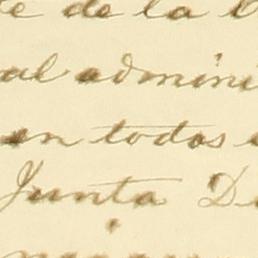 te de la
al admini
en todos
Junta D